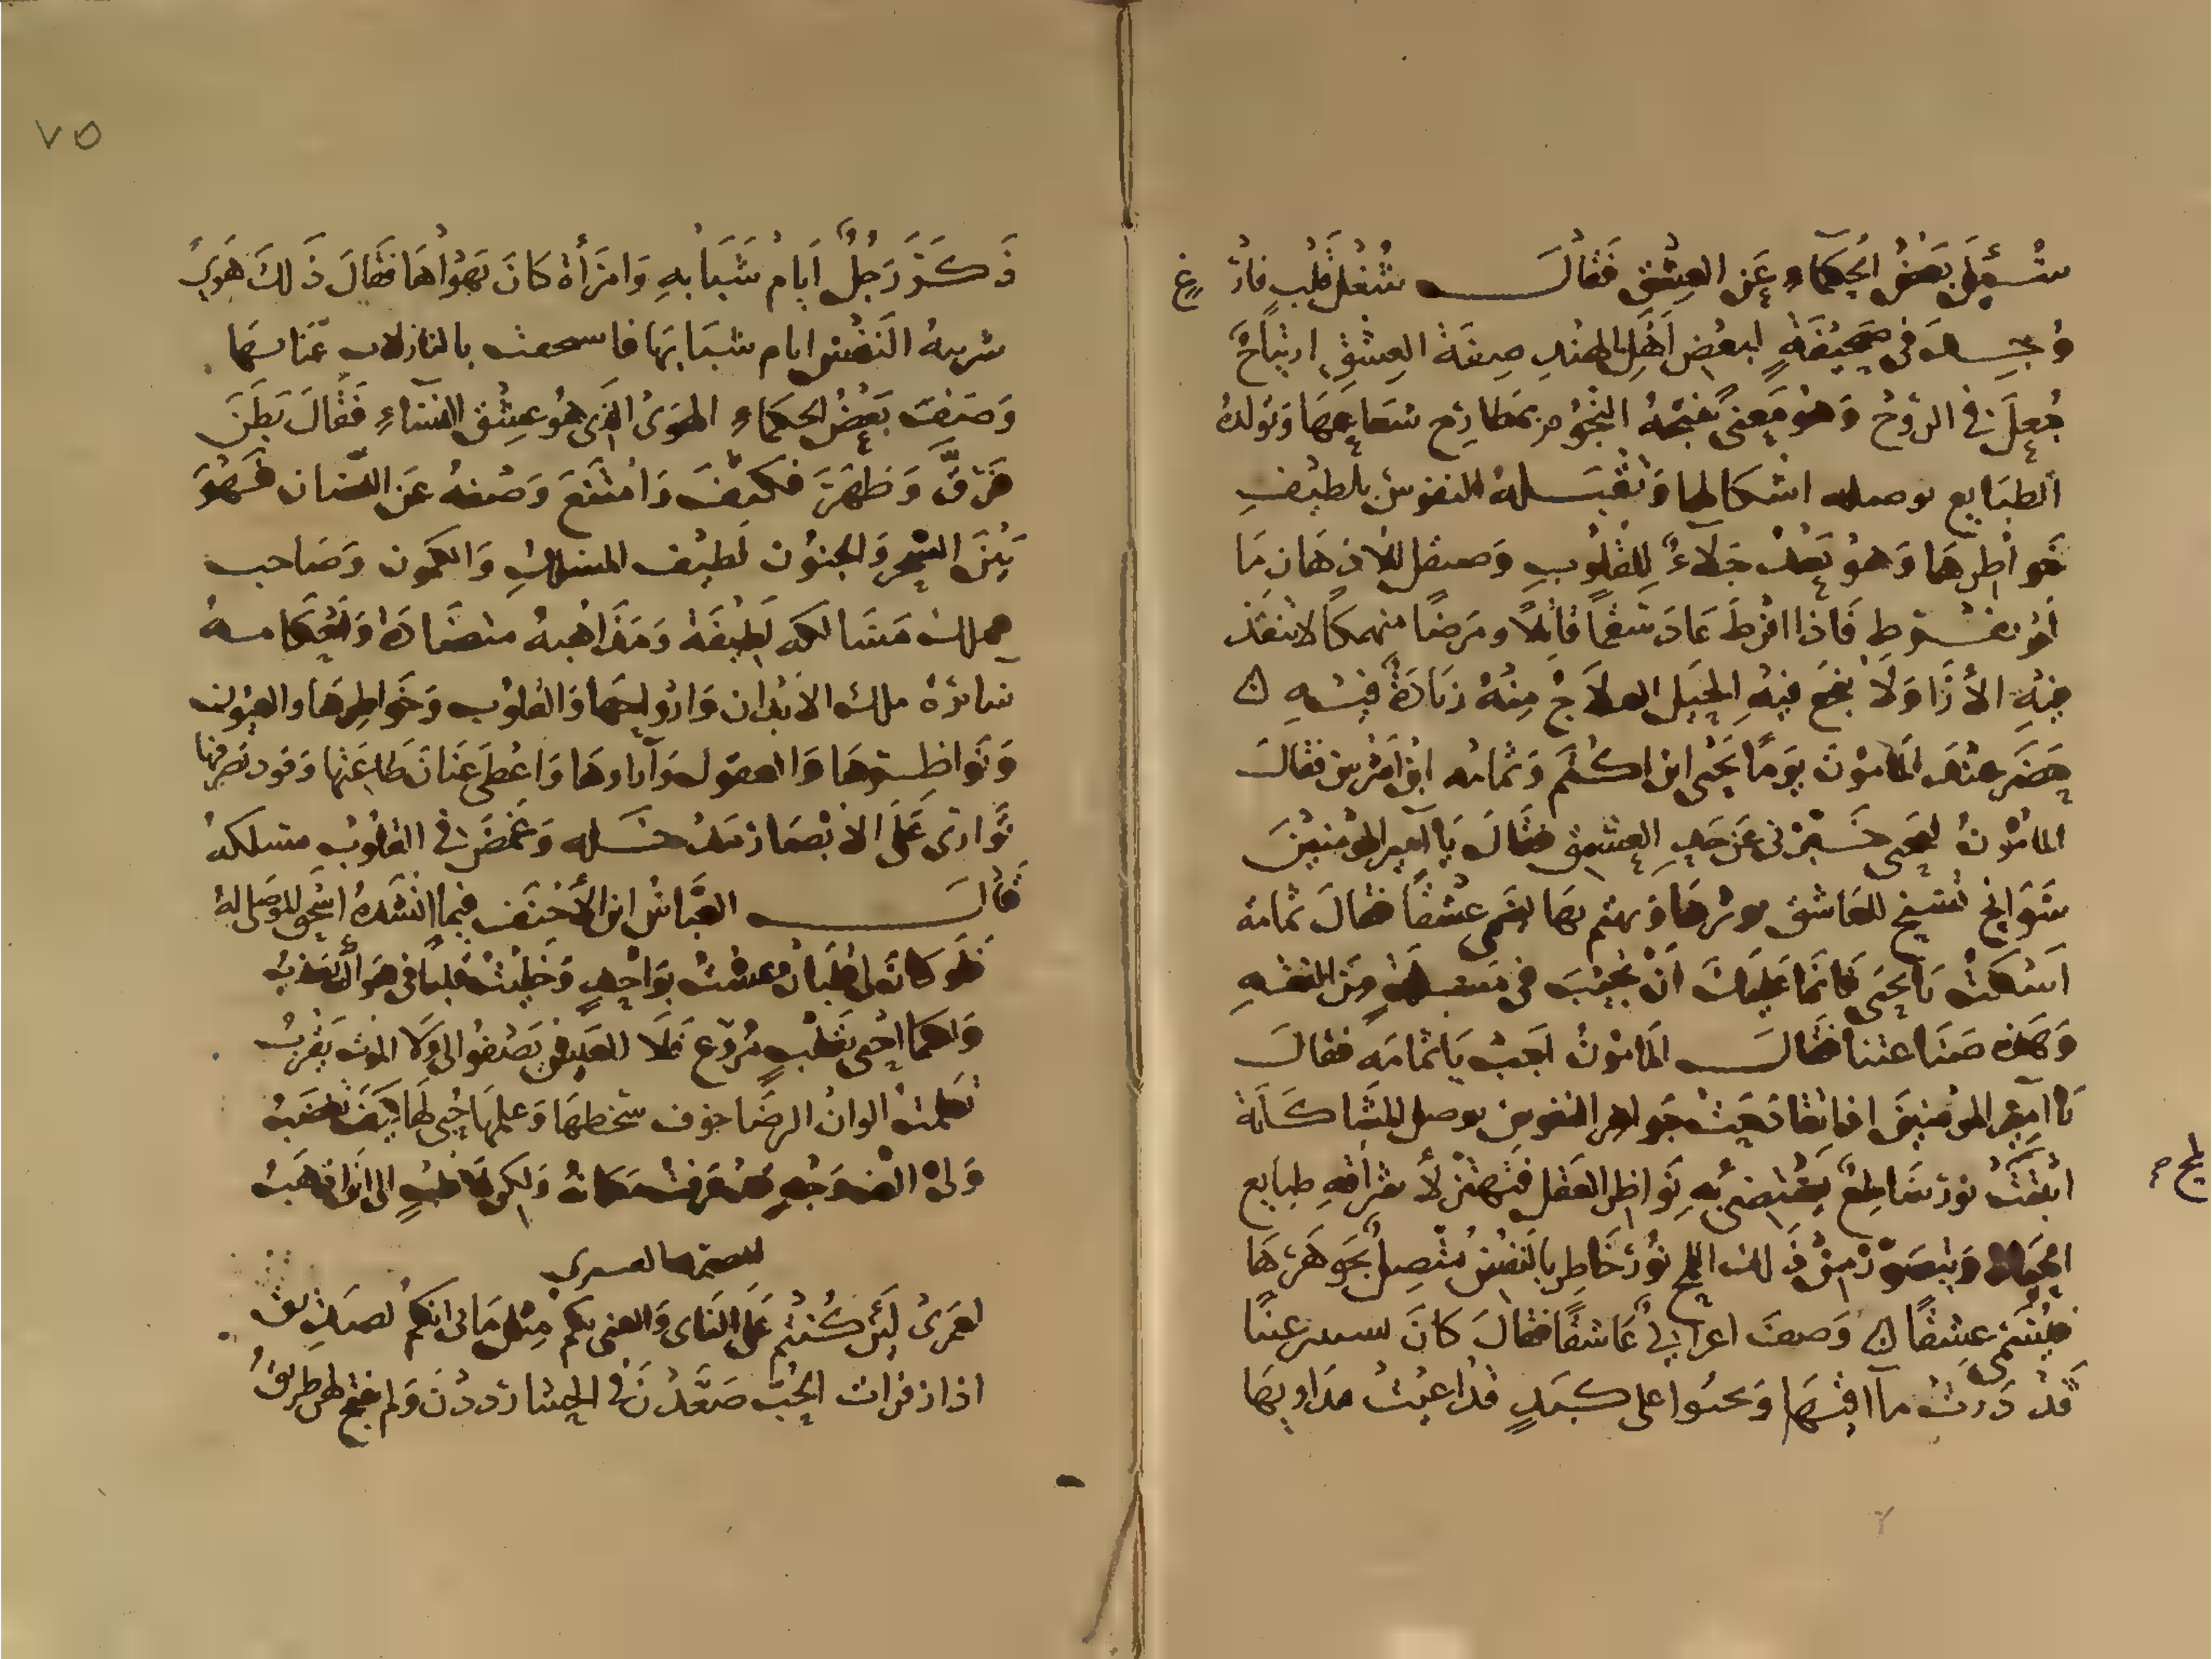 سُئِلَ بَعضُ الحُكَمَاءِ عَن العِشقِ فَقَالَ شُغلُ قَلبٍ فارغ
وُجِدَ فى صَحِيفَةٍ لبعضِ أهلِ الهندِ صِفَة العِشقِ ارتِيَاحٌ
جُعِلَ فى الرّوحُ وَهوَ مَعنىً تنتجُهُ النجُوُم بمَطارِح شعَاعِهَا وَتولدُهُ
الطبَايع بوصله اشكالها وَتقبَلهُ النفوسُ بلطيفِ
خَوَاطِرِهَا وَهوَ بَعدُ جَلآءٌ لِلقُلُوبِ وَصيقل للاذهَانِ مَا
لَم يفرط فَاذا افرطَ عَادَ سَقمًا قاتلاً ومَرَضًا منهمكًا لا تنفذ
فِيهِ الأرَا وَلَا تنجَعُ فِيهِ الحِيَل العلَاجُ مِنهُ زيَادَةٌ فِيهِ ه
حضَرَ عندَ المَامُونَ يَومًا يَحيى ابن اكثم وَثمَامه ابن اشرس فقالَ
المامُونُ ليَحيى خَبّرنى عَن حَدِ العِشقِ فقَالَ يَا آمِيرَ المؤمِنِينَ
سَوَانِح تسنح للعَاشق يوثرهَا وَيهتم بهَا تسَمى عشقًا فقَالَ ثمامة
اَسكت يَا يَحيَى فَانمَا عَلَيكَ اَن تجيبَ فى مَسئلةٍ مِنَ الفقهِ
وَهذِه صَنَاعتنا فقَالَ المَامُونُ اَجب يَا ثمَامَه فقالَ
يَا آمِيرَ المؤمِنِينَ اذا تقَادَحَت جَوَاهِر النفوسِ بوصل المشَاكَلَة
انبَعَثَت نورٌ سَاطِعٌ يَستضئُ بهِ نَوَاظِر العَقل فتهتزّ لأشرَاقهِ طبايع
الحَيَاة وَيتصَوّرُ مِن ذَلِكَ اللمح نُورٌ خَاطِر بالنفسِ مُتصِلٌ بجَوهَرِهَا
فيُسَمى عِشقًا ه وَصفَ اعرابىٌ عَاشقًا فقَالَ كَانَ يستر عينًا
قَد دَرت مآاقيهَا وَيحنُوا على كَبَدٍ قد اعيَت مدَاويهَا
لمح صح
٧٥
ذَكَرَ رَجُلٌ اَيَام شَبَابهِ وَامرَأة كَانَ يَهوَاهَا فقَالَ ذَلكَ هَوىً
شربتهُ النَفس ايام شبَابهَا فا بالنازلاب عَنَا
وَصَفَ بَعضُ الحكمَاءِ الهَوىُ الذى هُوَ عِشق النسَاءِ فَقَالَ بَطَنَ
فَرَقَّ وَظهَرَ فكَثفَ وَامتنَعَ وَصفهُ عَن اللسَان فَهُوَ
بَينَ السّحرِ وَالجنون لَطيف المسلكِ وَالكمون وَصَاحب
مملكه مَسَالكه لَطيفَة وَمذاهبهُ متضَادة وَاَحكامهُ
سائرَة ملك الابدَان وَاروَاحهَا وَالقلوب وَخَوَاطِرهَا والعيون
وَنَوَاظِرهَا وَالعقول وَآراوهَا وَاعطى عَنَانَ طاعَتهَا وَقود تصَرفها
تَوَارى عَلَى الاَبصَار مَدخَله وَغَمضَ فى القلُوبِ مَسلكهُ
قالَ العَبَّاسُ ابن الأحنَف فيمَا انشَدهُ اسحق الموصلى لهُ
فلو كانَ لى قلبَانِ عشتُ بوَاحِدٍ وَخَلّيتُ قلبًا فى هَوَاك يعَذبُ
وَلكنما احيى بقَلبٍ مُروّعٍ فَلَا العَيش يَصفوا لى وَلَا الموت يَقربُ
تعلمت الوانُ الرضَا خوف سخطهَا وَعلمهَا حُبى لهَا كيفَ تغضبُ
وَلى الف وَجهٍ قد عَرَفت مكَانهُ وَلكن بلَا قلبٍ الى ايَن اَذهَبُ
للصمة القسري
لعمَرىُ لَئِن كُنتُم عَلى النَاى وَالغنى بكم مِثل مَابى انكم لصَديقُ
اذا زفرات الحُبّ صَعّدنَ فى الحشا رددنَ وَلم تنهج لهن طريقُ